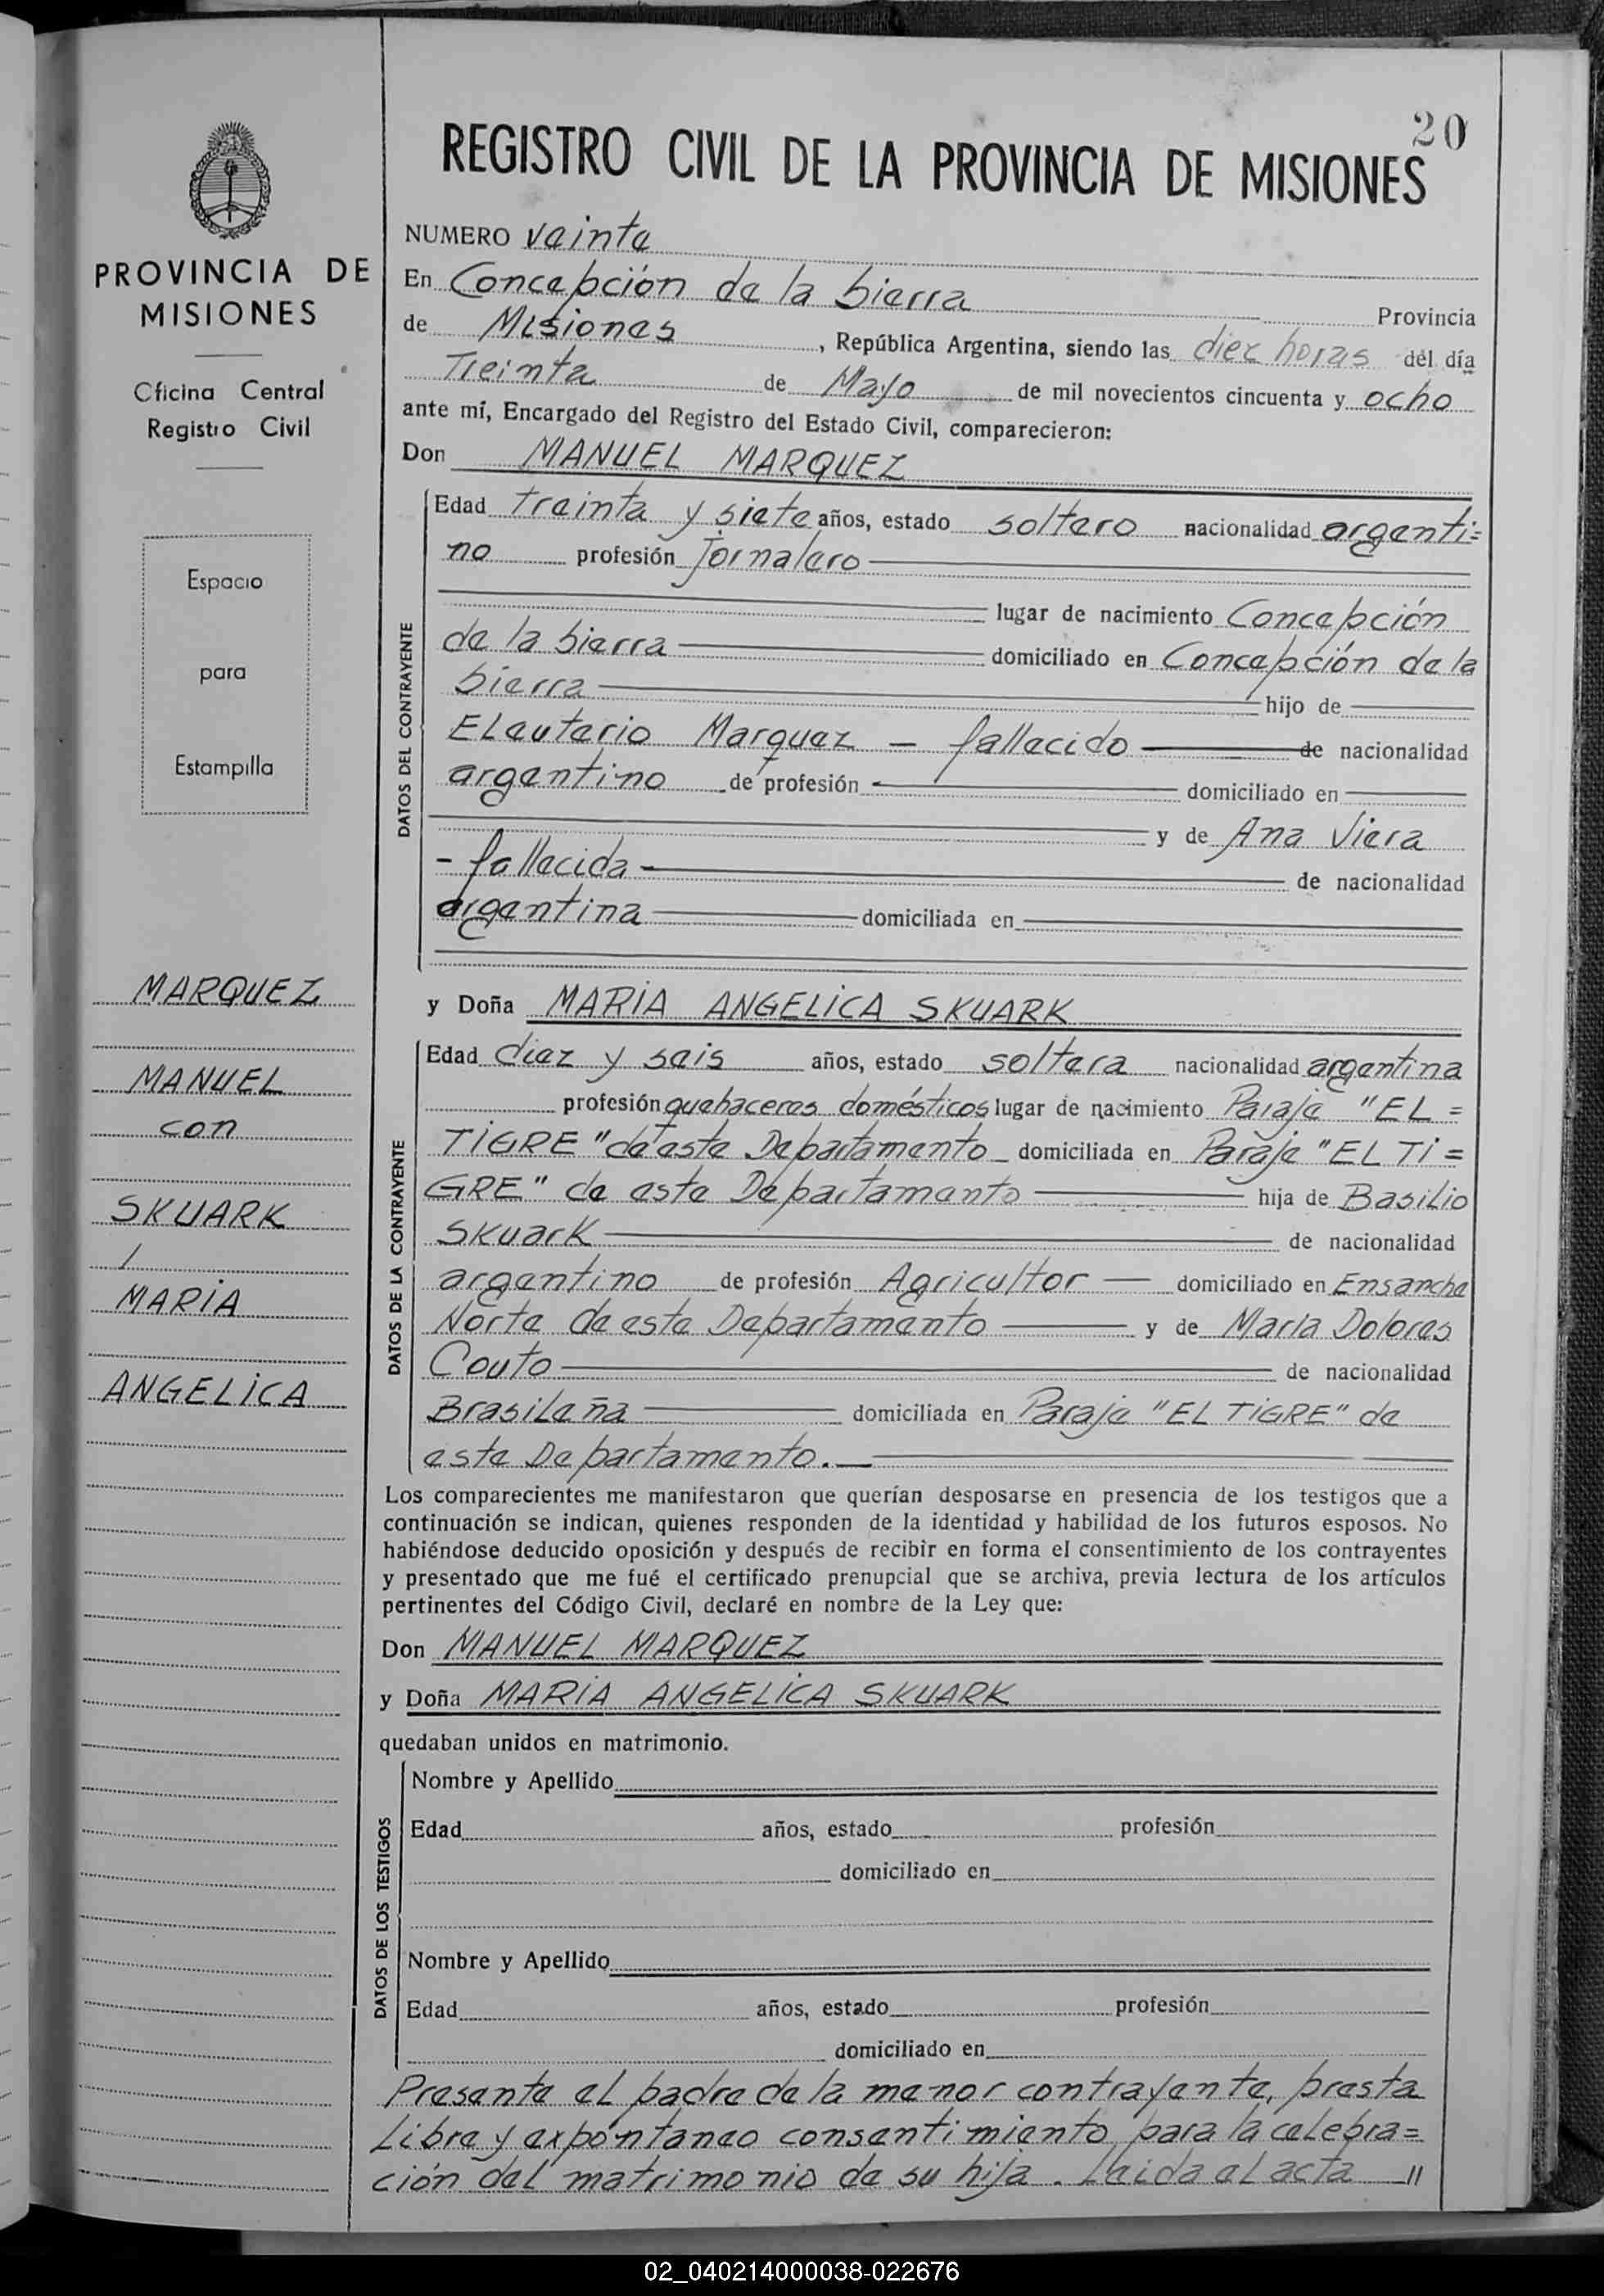 20
REGISTRO CIVIL DE LA PROVINCIA DE MISIONES
PROVINCIA DE
MISIONES
Oficina Central
Registro Civil
Espacio
para
Estampilla
MARQUEZ
MANUEL
con
SKUARK
MARIA
ANGELICA
NUMERO veinte
En Concepción de la Sierra Provincia
de Misiones, República Argentina, siendo las diez horas del día
Treinta de Mayo de mil novecientos cincuenta y ocho
ante mí, Encargado del Registro del Estado Civil, comparecieron:
Don MANUEL MARQUEZ
DATOS DEL CONTRAYENTE
Edad treinta y siete años, estado soltero nacionalidad argenti=
no profesión Jornalero
lugar de nacimiento Concepción
de la Sierra domiciliado en Concepción de la
Sierra hijo de
Eleuterio Marquez - fallecido de nacionalidad
argentino de profesión domiciliado en
y de Ana Viera
- fallecida de nacionalidad
argentina domiciliada en
y Doña MARIA ANGELICA SKUARK
DATOS DE LA CONTRAYENTE
Edad diez y seis años, estado soltera nacionalidad argentina
profesión quehaceres domésticos lugar de nacimiento Paraje "EL =
TIGRE" de este Departamento domiciliada en Paraje "EL TI =
GRE" de este Departamento hija de Basilio
Skuark de nacionalidad
argentino de profesión Agricultor domiciliado en Ensanche
Norte de este Departamento y de María Dolores
Couto de nacionalidad
Brasileña domiciliada en Paraje "EL TIGRE" de
este Departamento.
Los comparecientes me manifestaron que querían desposarse en presencia de los testigos que a
continuación se indican, quienes responden de la identidad y habilidad de los futuros esposos. No
habiéndose deducido oposición y después de recibir en forma el consentimiento de los contrayentes
y presentado que me fué el certificado prenupcial que se archiva, previa lectura de los artículos
pertinentes del Código Civil, declaré en nombre de la Ley que:
Don MANUEL MARQUEZ
y Doña MARIA ANGELICA SKUARK
quedaban unidos en matrimonio.
DATOS DE LOS TESTIGOS
Nombre y Apellido
Edad años, estado profesión
domiciliado en
Nombre y Apellido
Edad años, estado profesión
domiciliado en
Presente el padre de la menor contrayente, presta
Libre y expóntaneo consentimiento para la celebra=
ción del matrimonio de su hija. Leida el acta //
02_040214000038-022676